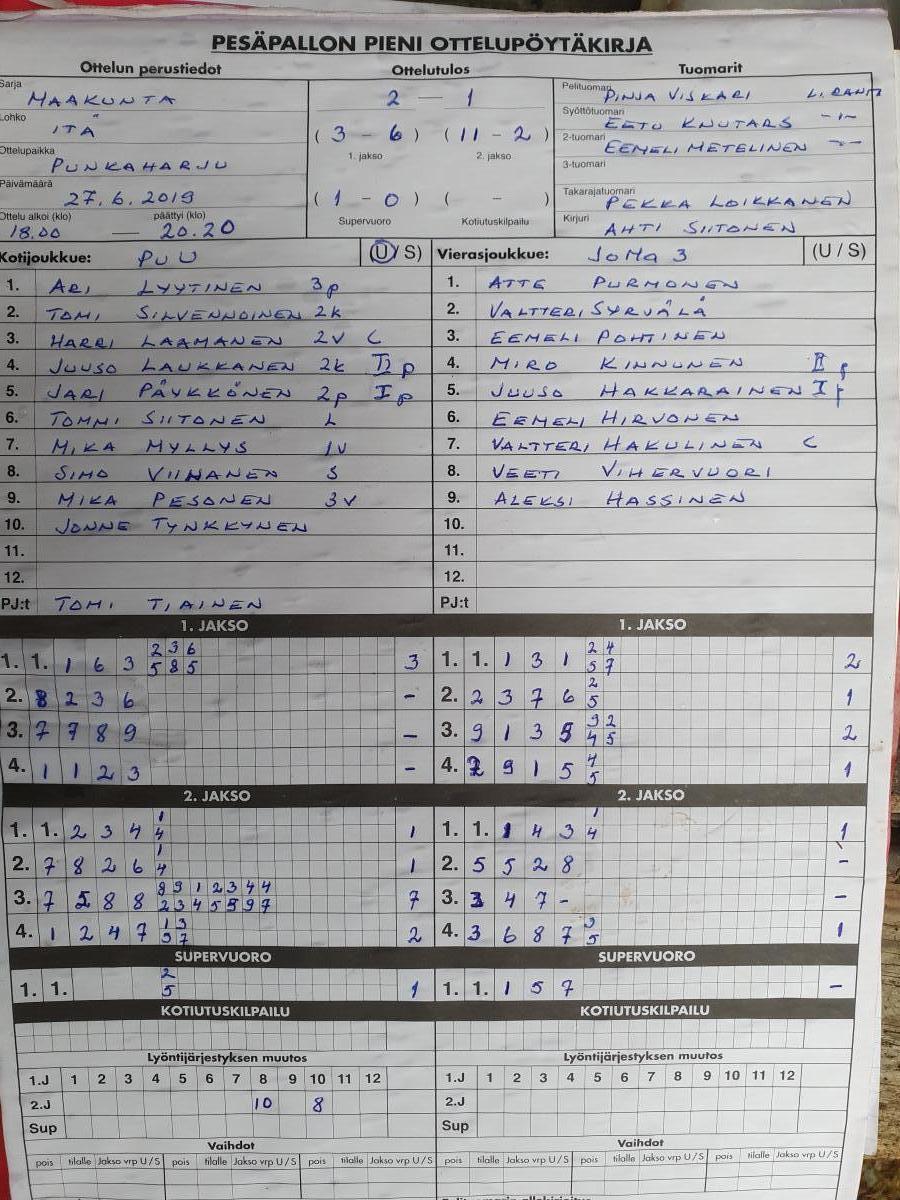 PESÄPALLON PIENI OTTELUPÖYTÄKIRJA
Ottelun perustiedot Ottelutulos Tuomarit
Sarja MAAKUNTA
Lohko ITÄ
Ottelupaikka PUNKAHARJU
Päivämäärä 27.6.2019
Ottelu alkoi (klo) päättyi (klo)
18.00 — 20.20
2 — 1
(3 - 6) (11 - 2)
1. jakso 2. jakso
(1 - 0) ( - )
Supervuoro Kotiutuskilpailu
Pelituomari PINJA VISKARI L. RANTA
Syöttötuomari EETU KNUTARS -"-
2-tuomari EEMELI METELINEN -"-
3-tuomari
Takarajatuomari PEKKA LOIKKANEN
Kirjuri AHTI SIITONEN
Kotijoukkue: PUU (U/S) Vierasjoukkue: JoMa 3 (U / S)
1. ARI LYYTINEN 3p 1. ATTE PURMONEN
2. TOMI SILVENNOINEN 2k 2. VALTTERI SYRVÄLÄ
3. HARRI LAAMANEN 2V C 3. EEMELI POHTINEN
4. JUUSO LAUKKANEN 2k II p 4. MIRO KINNUNEN II p
5. JARI PÄYKKÖNEN 2p I p 5. JUUSO HAKKARAINEN I p
6. TOMMI SIITONEN L 6. EEMELI HIRVONEN
7. MIKA MYLLYS 1V 7. VALTTERI HAKULINEN C
8. SIMO VIINANEN S 8. VEETI VIHERVUORI
9. MIKA PESONEN 3V 9. ALEKSI HASSINEN
10. JONNE TYNKKYNEN 10.
11. 11.
12. 12.
PJ:t TOMI TIAINEN PJ:t
1. JAKSO 1. JAKSO
2 3 6 2 4
1. 1. 1 6 3 5 8 5 3 1. 1. 1 3 1 5 7 2
2. 8 2 3 6 - 2. 2 3 7 6 2 5 1
3. 7 7 8 9 - 3. 9 1 3 5 3 2 4 5 2
4. 1 1 2 3 - 4. 2 9 1 5 4 5 1
2. JAKSO 2. JAKSO
1. 1. 2 3 4 1 4 1 1. 1. 1 4 3 1 4 1
2. 7 8 2 6 1 4 1 2. 5 5 2 8 -
3. 7 5 8 8 8 9 1 2 3 4 4 7 3. 3 4 7 - -
2 3 4 5 5 9 7
4. 1 2 4 7 1 3 5 7 2 4. 3 6 8 7 3 5 1
SUPERVUORO SUPERVUORO
1. 1. 2 5 1 1. 1. 1 5 7 -
KOTIUTUSKILPAILU KOTIUTUSKILPAILU
Lyöntijärjestyksen muutos Lyöntijärjestyksen muutos
1.J 1 2 3 4 5 6 7 8 9 10 11 12 1.J 1 2 3 4 5 6 7 8 9 10 11 12
2.J 10 8 2.J
Sup Sup
Vaihdot Vaihdot
pois tilalle Jakso vrp U/S pois tilalle Jakso vrp U/S pois tilalle Jakso vrp U/S pois tilalle Jakso vrp U/S pois tilalle Jakso vrp U/S pois tilalle Jakso vrp U/S